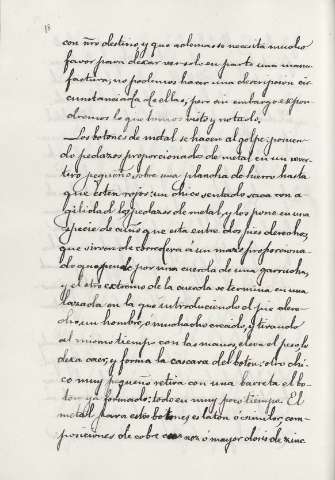 18
con ñro destino, y que ademas se necesita mucho
favor para dexar ver solo en parte una manu-
factura; no podemos hacer una descripcion cir-
cunstanciada de ellas, pero sin embargo expon-
dremos lo que hemos visto y notado.
Los botones de metal se hacen al golpe: ponien-
do pedazos proporcionados de metal en un rever-
vero pequeño, sobre una plancha de hierro hasta
que esten rojos: un chico sentado saca con a-
gilidad los pedazos de metal, y los pone en una
especie de cuño que esta entre dos pies derechos,
que sirven de corredera á un mazo proporciona-
do que pende por una cuerda de una garrucha,
y el otro extremo de la cuerda se termina en una
lazada en la que introduciendo el pie dere-
cho, un hombre, ó muchacho crecido, y tirando
al mismo tiempo con las manos, eleva el peso, lo
dexa caer, y forma la cascara del boton: otro chi-
co muy pequeño retira con una barreta el bo-
ton ya formado: todo en muy poco tiempo. El
metal para estos botones es laton ó similor, com-
posiciones de cobre con ó mayor dosis de zinc